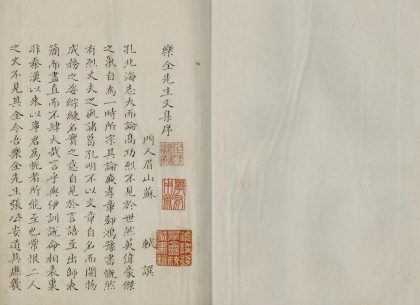 樂全先生文集序
門人眉山蘇 軾 譔
孔北海志大而論高功烈不見於世然英偉豪傑
之氣自為一時所宗其論盛孝章郗鴻豫書慨然
有烈丈夫之風諸葛孔明不以文章自名而開物
成務之姿綜練名實之意自見於言語至出師表
簡而盡直而不肆大哉言乎與伊訓說命相表裏
非秦漢以來以事君為悅者所能至也常恨二人
之文不見其全今吾樂全先生張公安道其庶幾